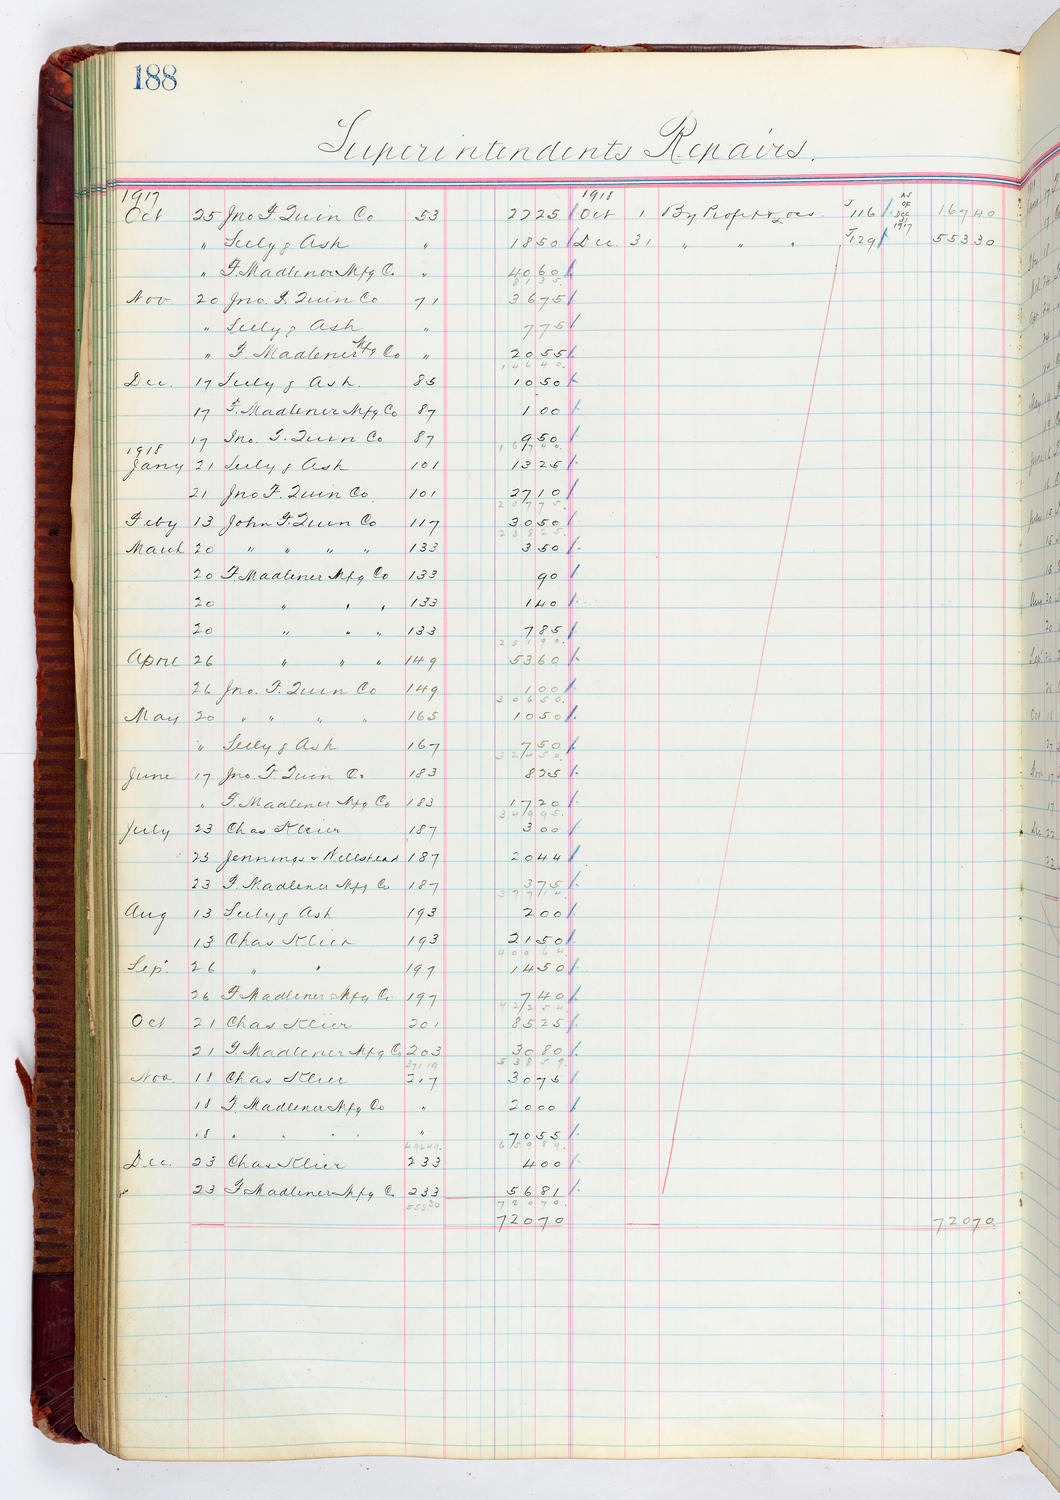 188
Superintendents Repairs.
1917
Oct 25 Jno F. Quin Co 53 2225
" Seely & Ash " 1850
" F. Madlener Mfg Co. " 4060
8135.
Nov. 20 Jno. F. Quin Co 71 3675
" Seely & Ash " 775
" F. Madlener Mfg Co " 2055
14640.
Dec. 17 Seely & Ash. 85 1050
17 F. Madlener Mfg Co 87 100
17 Jno. F. Quin Co 87 950
16740.
1918
Jany 21 Seely & Ash 101 1325
21 Jno F. Quin Co. 101 2710
20775.
Feby 13 John F. Quin Co 117 3050
23825.
March 20 " " " " 133 350
20 F. Madlener Mfg Co 133 90
20 " " " 133 140
20 " " " 133 785
25190.
April 26 " " " 149 5360
26 Jno. F. Quin Co 149 100
30650.
May 20 " " " " 165 1050
" Seely & Ash 167 750
32450.
June 17 Jno. F. Quin Co. 183 825
" F. Madlener Mfg Co 183 1720
34995.
July 23 Chas Klier 187 300
23 Jennings & Willstead 187 2044
23 F. Madlener Mfg Co 187 375
37714.
Aug 13 Seely & Ash 193 200
13 Chas Klier 193 2150
40064.
Sep. 26 " " 197 1450
26 F. Madlener Mfg Co. 197 740
42254.
Oct 21 Chas Klier 201 8525
21 F. Madlener Mfg Co 203 3080
37119 53859.
Nov. 18 Chas Klier 217 3075
18 F. Madlener Mfg Co " 2000
18 " " " " " 7055
49249. 65989.
Dec. 23 Chas Klier 233 400
23 F. Madlener Mfg Co 233 5681
55330 72070.
72070
1918
Oct 1 By Profit & Loss. J116 AS OF Dec 31 1917 16740
Dec. 31 " " " J129 55330
72070.